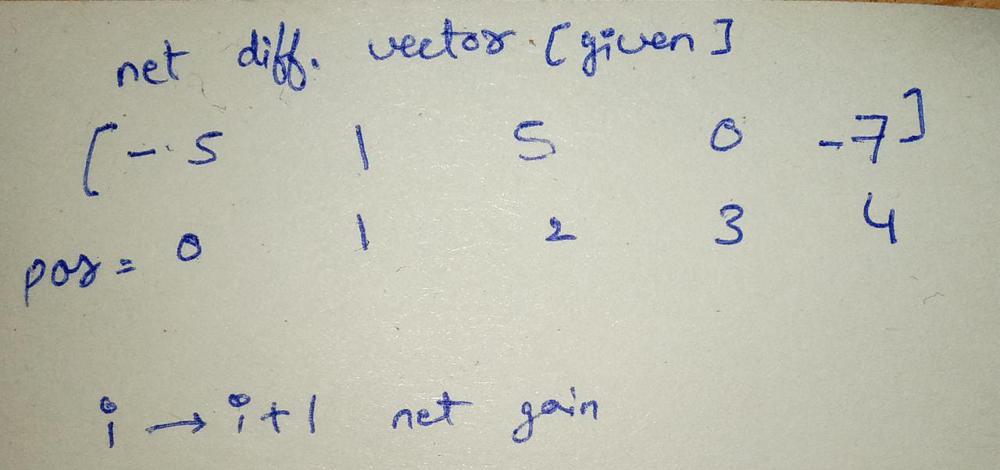 net diff. vector. [given]
[-5 1 5 0 -7]
pos = 0 1 2 3 4
i → i+1 net gain